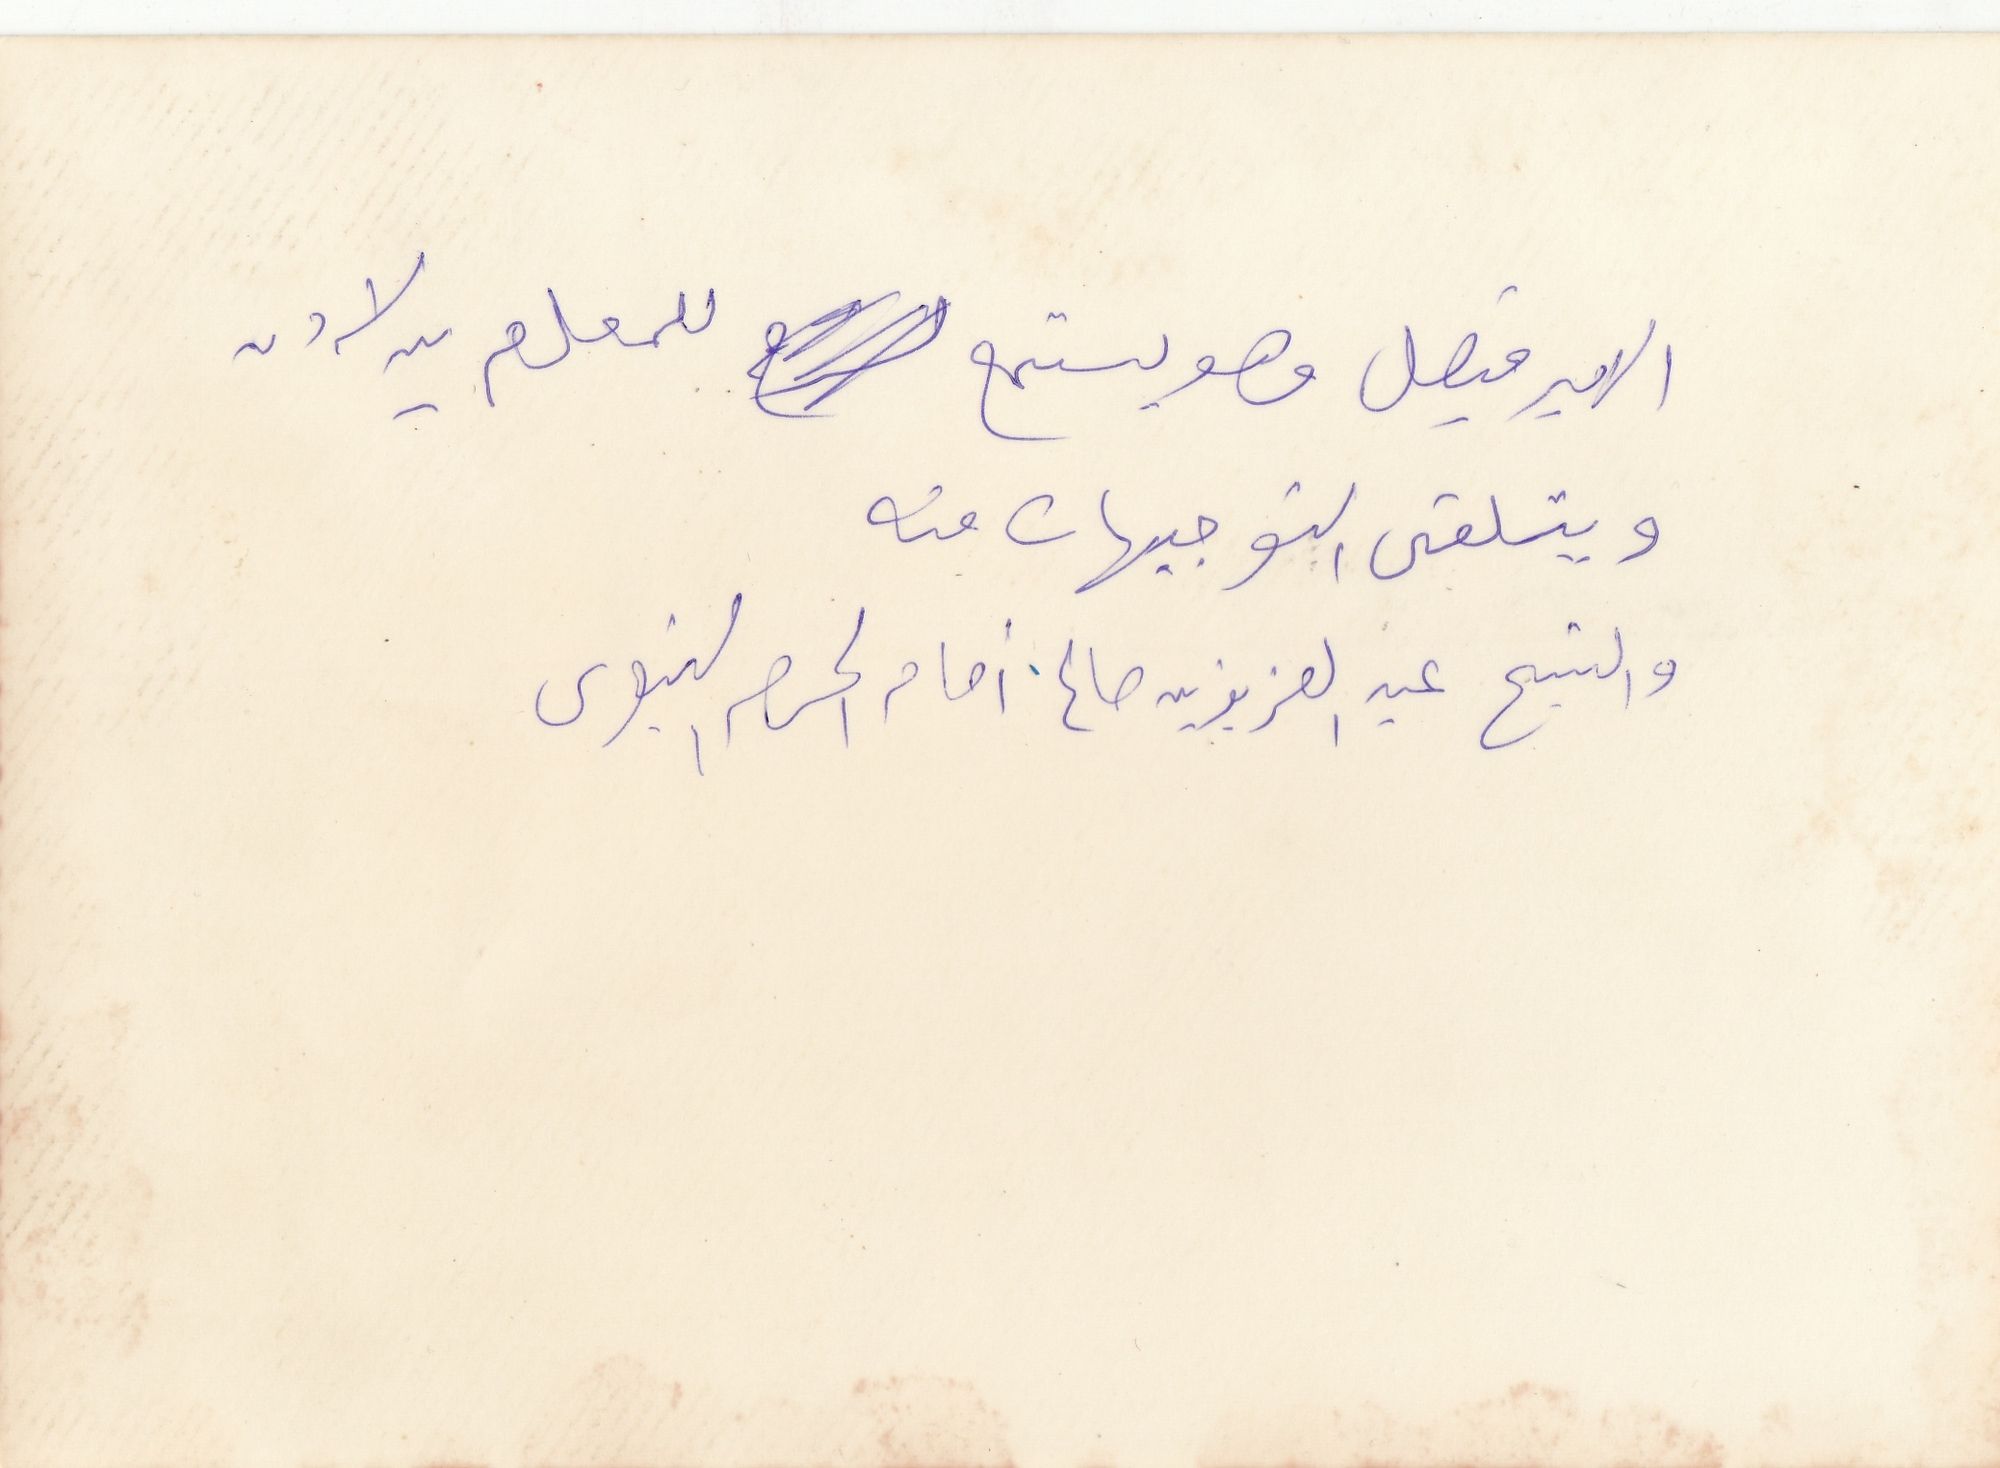 الامير فيصل وهو يستمع للمعلم بن لادن
ويتلقى التوجيهات منه
والشيخ عبد العزيز بن صالح أمام الحرم النبوى